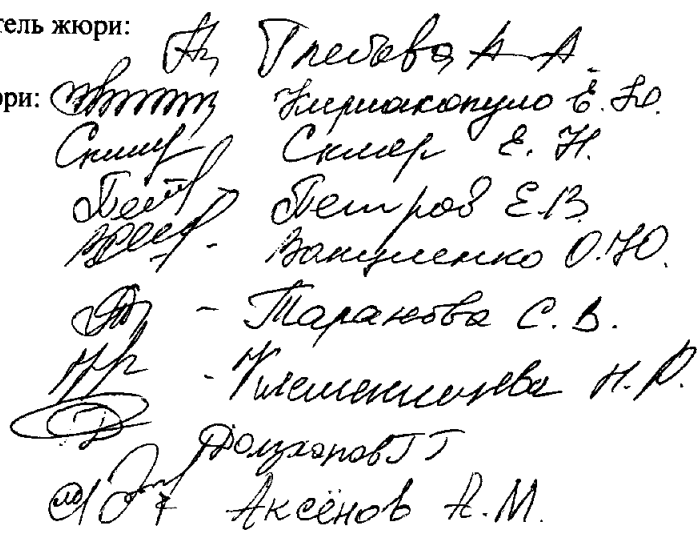 тель жюри:
Глебова А. А.
ори: Кириакопуло Е. Ю.
Скляр Е. Н.
Петров Е.В.
Вакуленко О.Ю.
- Таранова С. В.
- Клеменичева Н. Р.
Долуханов Г Г
Аксёнов А.М.